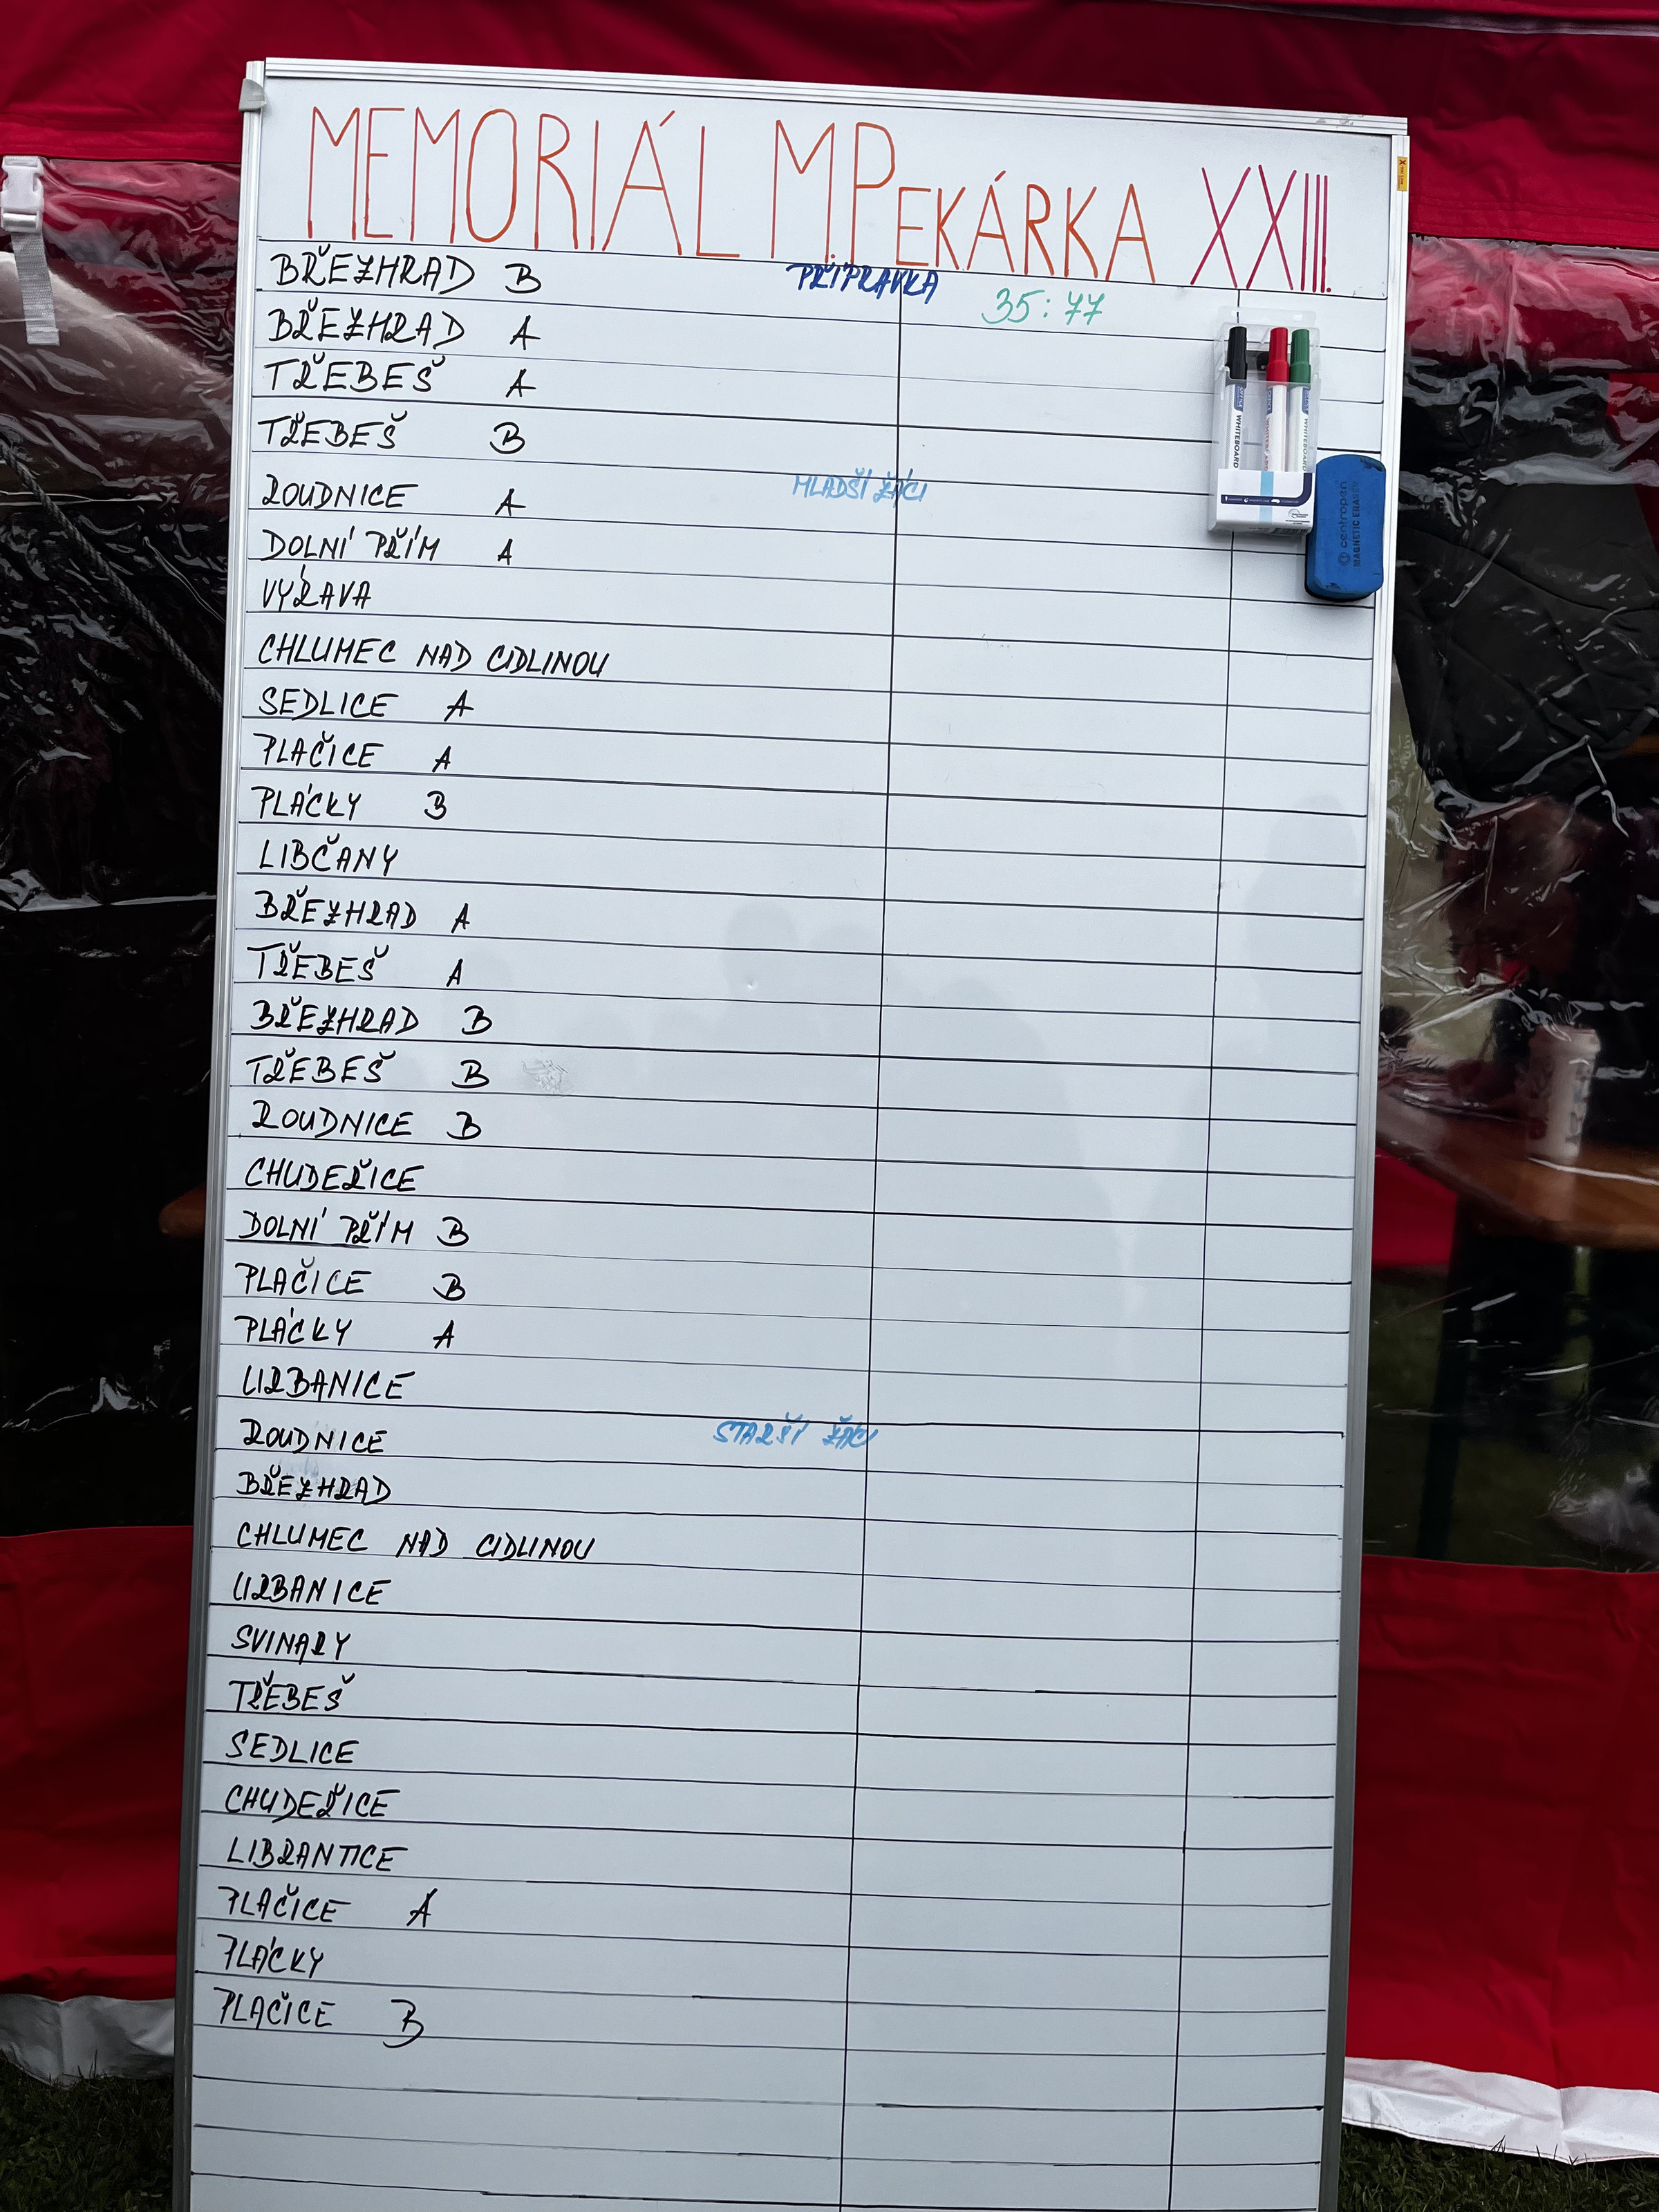 MEMORIÁL M.PEKÁRKA XXIII.
BŘEZHRAD B PŘÍPRAVKA 35:77
BŘEZHRAD A
TŘEBEŠ A
TŘEBEŠ B
ROUDNICE A MLADŠÍ ŽÁCI
DOLNÍ PŘÍM A
VÝRAVA
CHLUMEC NAD CIDLINOU
SEDLICE A
PLAČICE A
PLÁCKY B
LIBČANY
BŘEZHRAD A
TŘEBEŠ A
BŘEZHRAD B
TŘEBEŠ B
ROUDNICE B
CHUDEŘICE
DOLNÍ PŘÍM B
PLAČICE B
PLÁCKY A
URBANICE
ROUDNICE STARŠÍ ŽÁCI
BŘEZHRAD
CHLUMEC NAD CIDLINOU
URBANICE
SVINARY
TŘEBEŠ
SEDLICE
CHUDEŘICE
LIBRANTICE
PLAČICE A
PLÁCKY
PLAČICE B
WHITEBOARD
WHITEBOARD
centropen
MAGNETIC ERASER